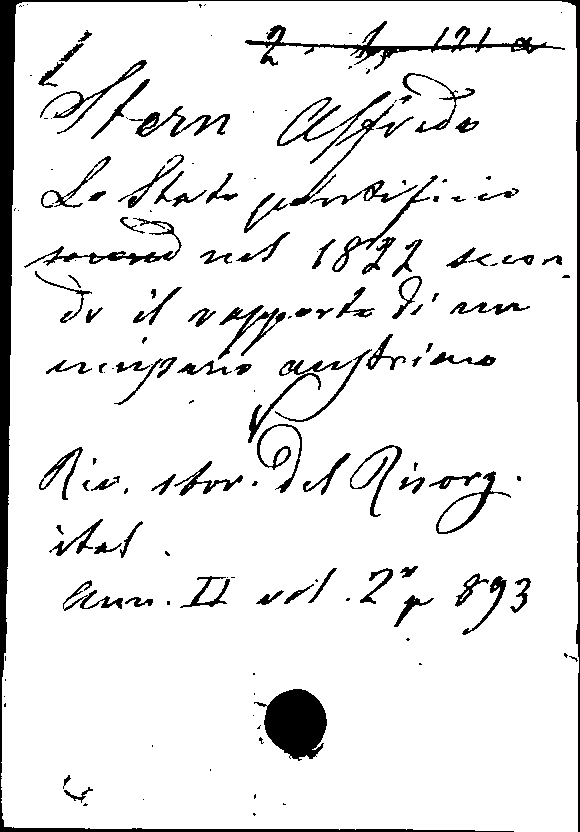 2. 121 a
Stern Alfredo
Lo Stato pontificio
nel 1822 secon-
do il rapporto di un
emissario austriaco
Riv. stor. del Risorg.
ital.
Ann. II vol. 2º p 893